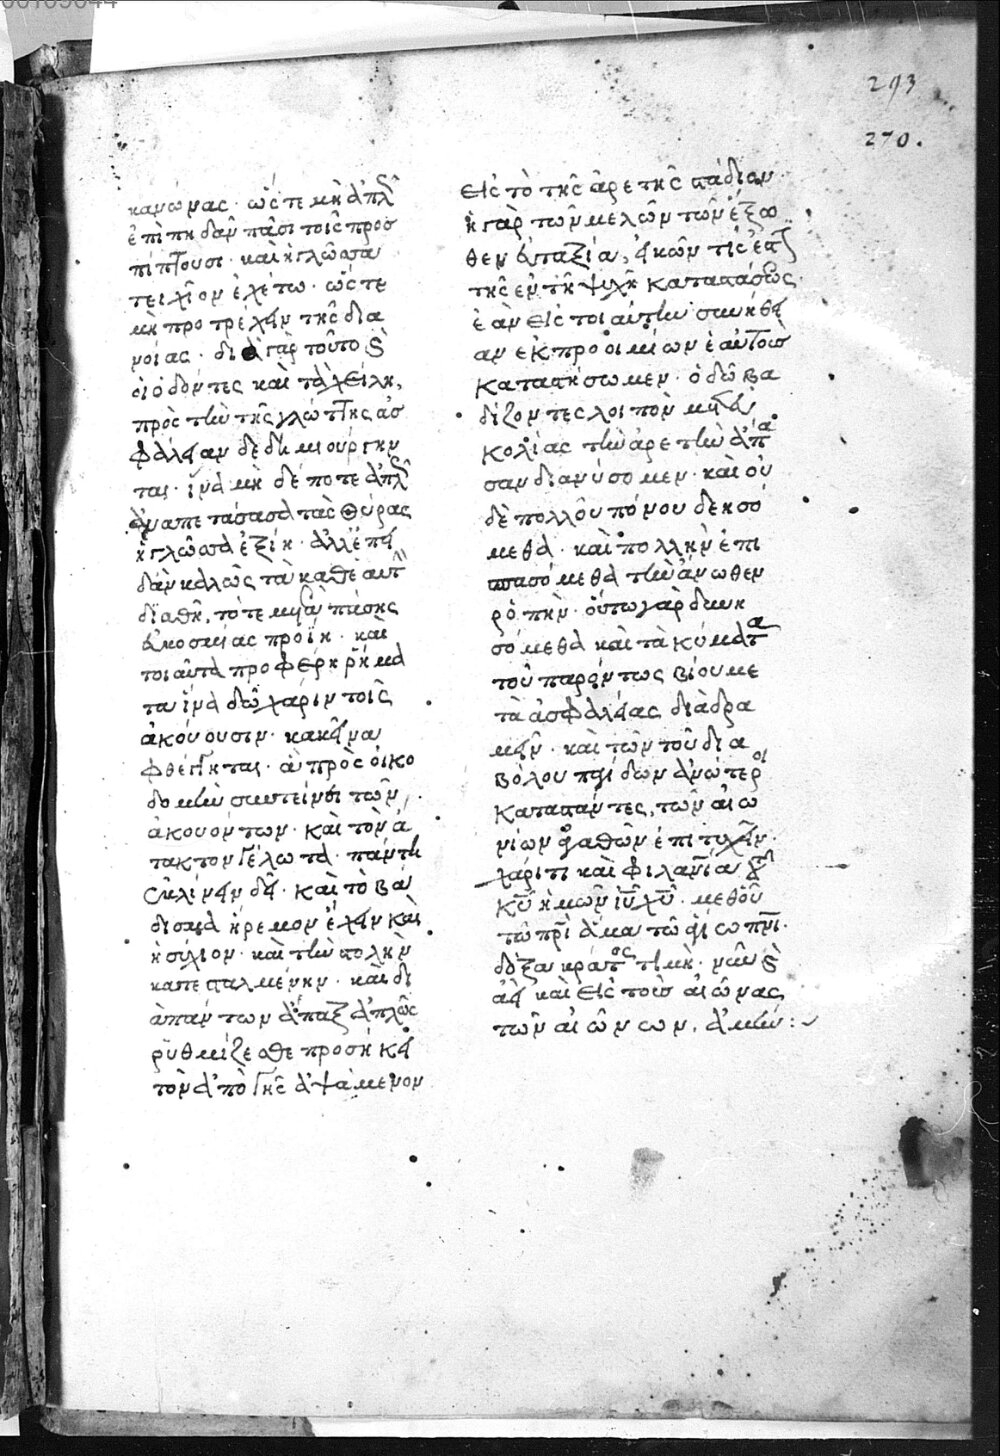 293
270.
κανώνας · ὥστε μὴ ἁπλῶς
ἐπιπηδᾶν πᾶσι τοῖς προσ
πίπτουσι · καὶ ἡ γλῶσσα
τειχίον ἐχέτω · ὥστε
μὴ προτρέχειν τῆς δια
νοίας · διὰ γὰρ τοῦτο καὶ
οἱ ὀδόντες καὶ τὰ χείλη,
πρὸς τὴν τῆς γλώττης ἀσ
φάλειαν δεδημιούργην
ται · ἵνα μὴ δέ ποτε ἁπλῶς
ἀναπετάσασα τὰς θύρας
ἡ γλῶσσα ἐξίη · ἀλλ' ἐπει
δὰν καλῶς τὰ καθ' ἑαυτὴν
διαθῆ, τότε μετὰ πάσης
εὐκοσμίας προΐη · καὶ
τοιαῦτα προφέρη ῥήμα
τα ἵνα δῶ χάριν τοῖς
ἀκούουσιν · κἀκεῖνα
φθέγγηται · ἃ πρὸς οἰκο
δομὴν συντείνει τῶν
ἀκουόντων · καὶ τὸν ἄ
τακτον γέλωτα · πάντη
ἐκκλίνειν δεῖ · καὶ τὸ βά
δισμα ἠρεμον ἔχειν καὶ
ἡσύχιον · καὶ τὴν στολὴν
κατεσταλμένην · καὶ δι
ἁπάντων ἅπαξ ἁπλῶς
ῥυθμίζεσθε προσήκει
τὸν ἀπογραψάμενον
εἰς τὸ τῆς ἀρετῆς στάδιον ·
ἡ γὰρ τῶν μελῶν τῶν ἔξω
θεν εὐταξία, εἰκών τίς ἐστι
τῆς ἐν τῆ ψυχῆ καταστάσεως ·
ἐὰν εἰς τοιαύτην συνήθει
αν ἐκ προοιμίων ἑαυτοὺς
καταστήσωμεν · ὁδῶ βα
δίζοντες λοιπὸν μετ' εὐ
κολίας τὴν ἀρετὴν ἅπα
σαν διανύσομεν · καὶ οὐ
δὲ πολλοῦ πόνου δεησό
μεθα · καὶ πολλὴν ἐπι
σπασόμεθα τὴν ἄνωθεν
ῥοπὴν · οὕτω γὰρ δυνη
σόμεθα καὶ τὰ κύματα
τοῦ παρόντος βίου με
τὰ ἀσφαλείας διαδρα
μεῖν · καὶ τῶν τοῦ δια
βόλου παγίδων ἀνώτεροι
καταστάντες, τῶν αἰω
νίων ἀγαθῶν ἐπιτυχεῖν ·
χάριτι καὶ φιλανΐα τοῦ
κῦ ἡμῶν ἰῦ χῦ · μεθοῦ
τῶ πρὶ ἅμα τῶ ἁγίω πνι ·
δόξα κράτος τιμὴ · νῦν καὶ
ἀεὶ καὶ εἰς τοὺς αἰῶνας
τῶν αἰώνων, ἀμήν : ~